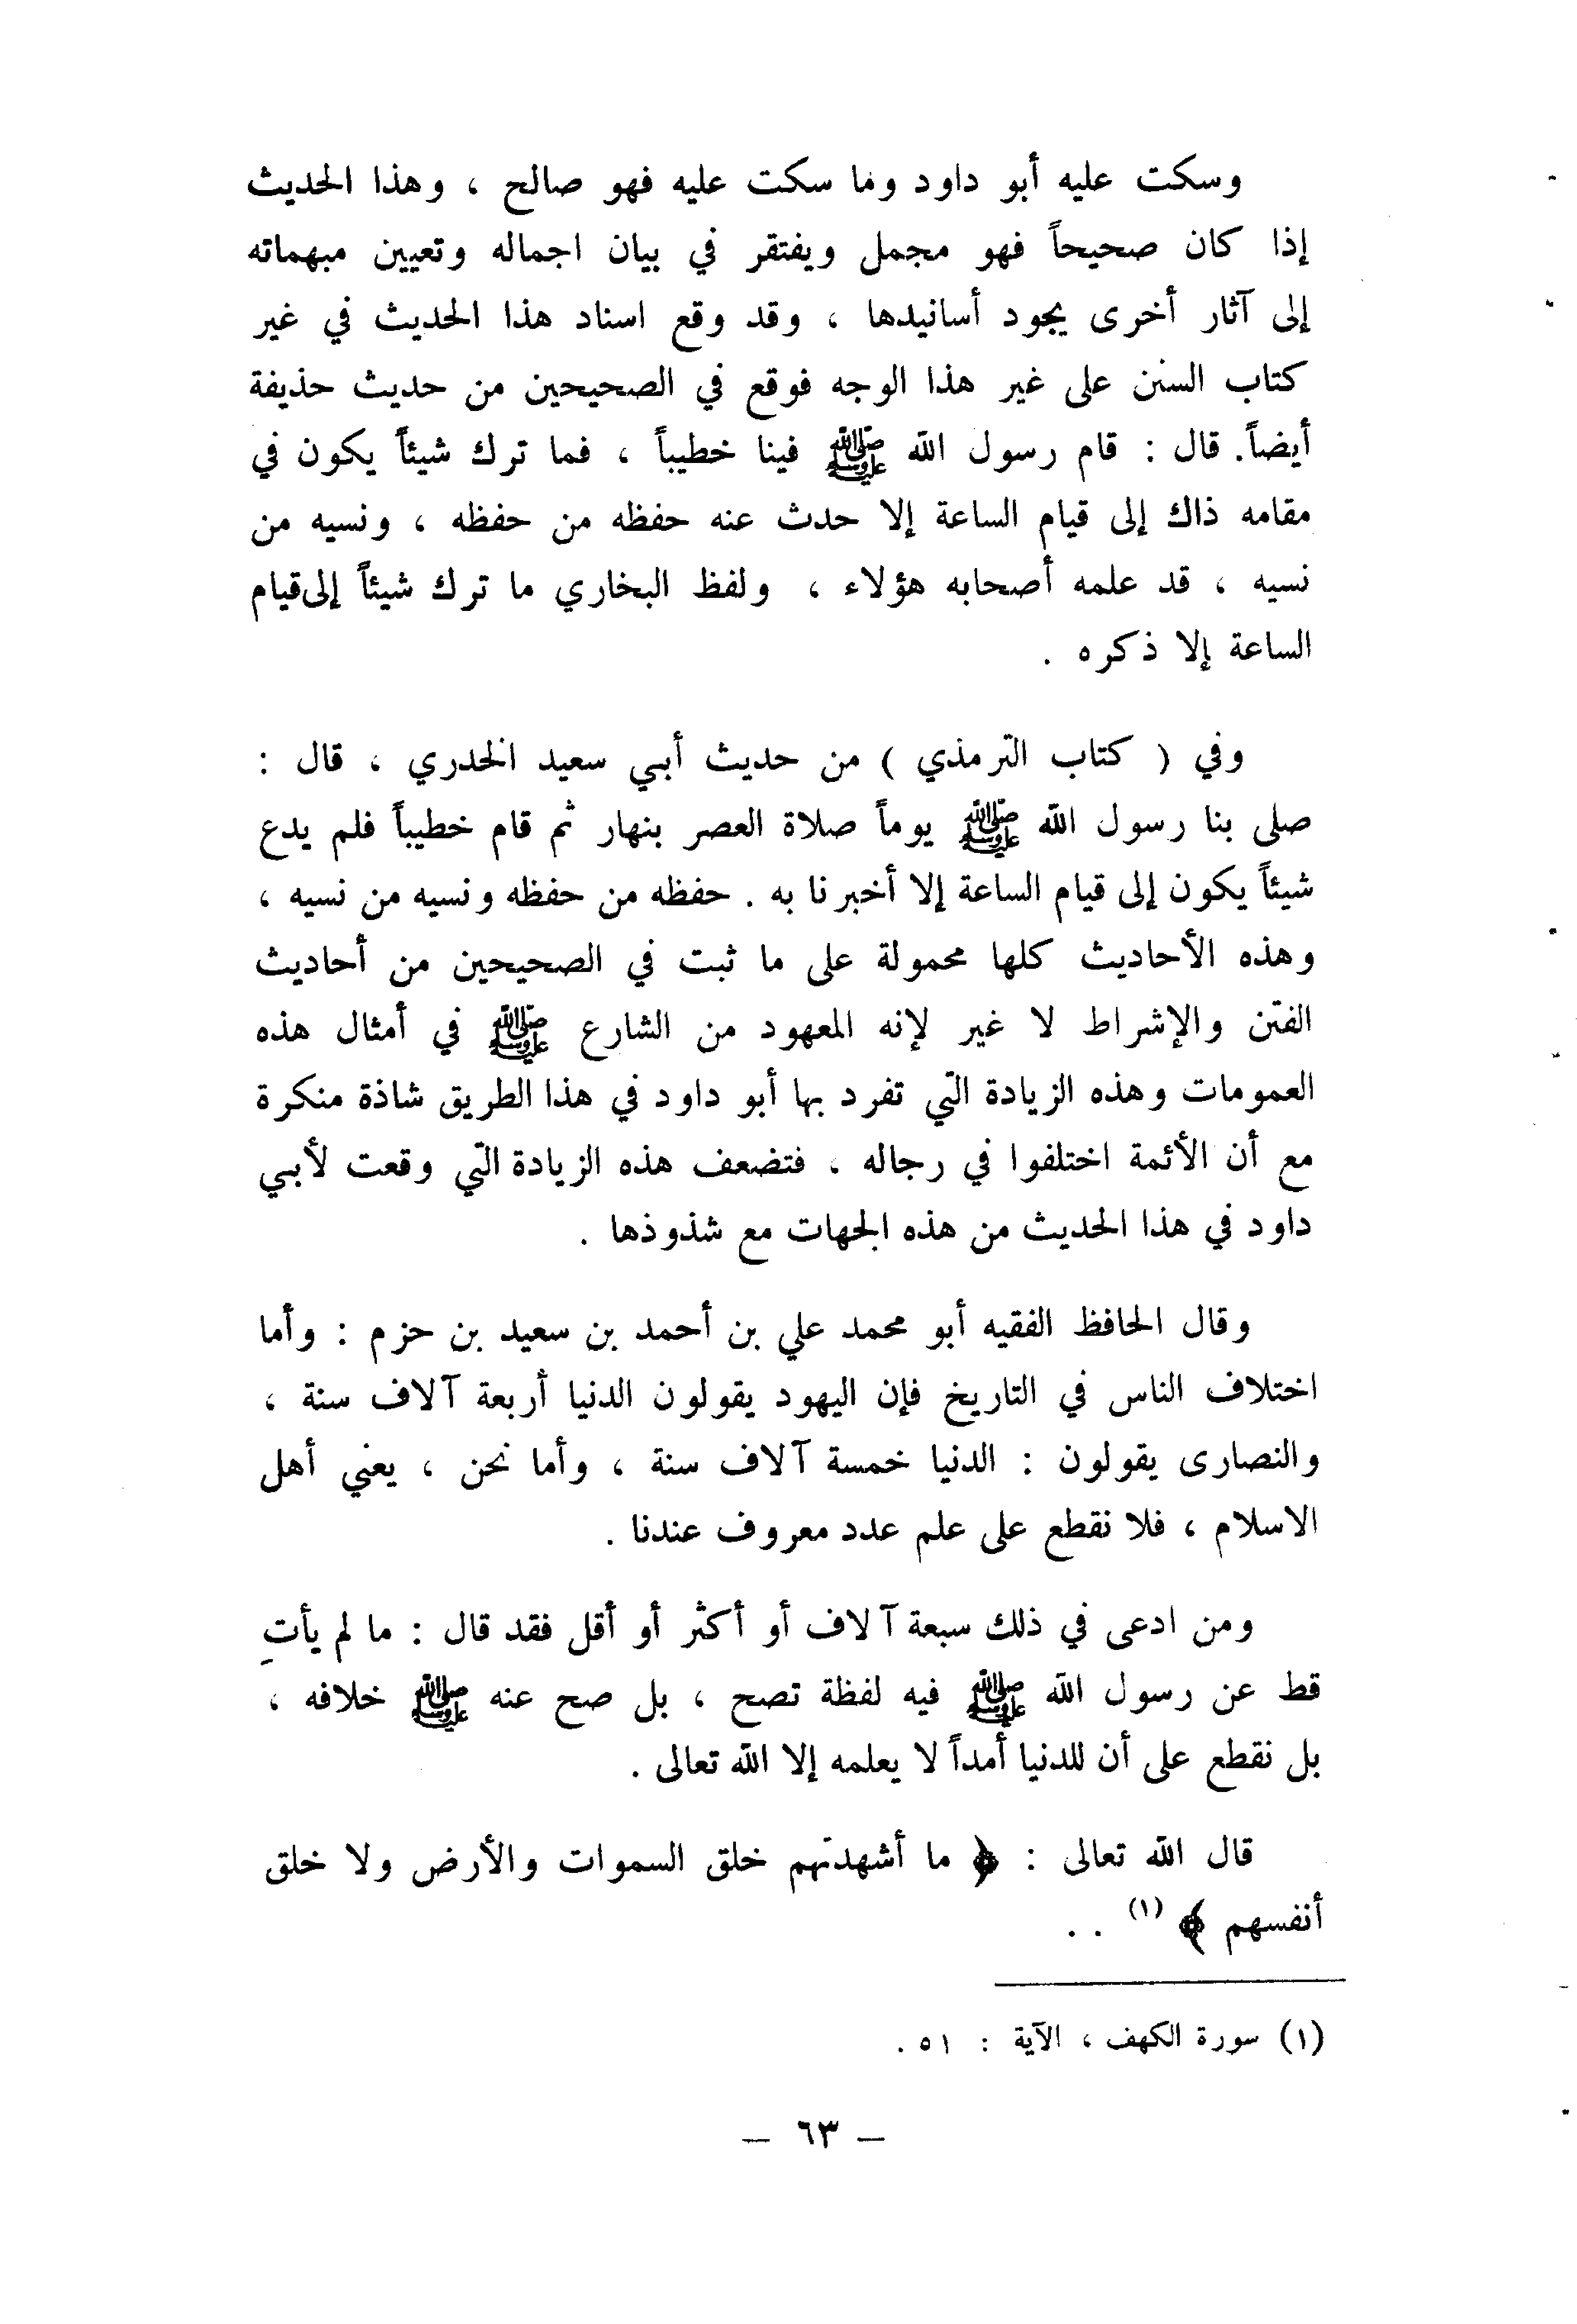 وسكت عليه أبو داود وما سكت عليه فهو صالح ، وهذا الحديث
إذا كان صحيحاً فهو مجمل ويفتقر في بيان اجماله وتعيين مبهماته
إلى آثار أخرى يجود أسانيدها ، وقد وقع اسناد هذا الحديث في غير
كتاب السنن على غير هذا الوجه فوقع في الصحيحين من حديث حذيفة
أيضاً. قال : قام رسول الله ﷺ فينا خطيباً ، فما ترك شيئاً يكون في
مقامه ذاك إلى قيام الساعة إلا حدث عنه حفظه من حفظه ، ونسيه من
نسيه ، قد علمه أصحابه هؤلاء ، ولفظ البخاري ما ترك شيئاً إلى قيام
الساعة إلا ذكره .
وفي ( كتاب الترمذي ) من حديث أبي سعيد الخدري ، قال :
صلى بنا رسول الله ﷺ يوماً صلاة العصر بنهار ثم قام خطيباً فلم يدع
شيئاً يكون إلى قيام الساعة إلا أخبرنا به . حفظه من حفظه ونسيه من نسيه ،
وهذه الأحاديث كلها محمولة على ما ثبت في الصحيحين من أحاديث
الفتن والإشراط لا غير لإنه المعهود من الشارع ﷺ في أمثال هذه
العمومات وهذه الزيادة التي تفرد بها أبو داود في هذا الطريق شاذة منكرة
مع أن الأئمة اختلفوا في رجاله ، فتضعف هذه الزيادة التي وقعت لأبي
داود في هذا الحديث من هذه الجهات مع شذوذها .
وقال الحافظ الفقيه أبو محمد علي بن أحمد بن سعيد بن حزم : وأما
اختلاف الناس في التاريخ فإن اليهود يقولون الدنيا أربعة آلاف سنة ،
والنصارى يقولون : الدنيا خمسة آلاف سنة ، وأما نحن ، يعني أهل
الاسلام ، فلا نقطع على علم عدد معروف عندنا .
ومن ادعى في ذلك سبعة آلاف أو أكثر أو أقل فقد قال : ما لم يأتِ
قط عن رسول الله ﷺ فيه لفظة تصح ، بل صح عنه ﷺ خلافه ،
بل نقطع على أن للدنيا أمداً لا يعلمه إلا الله تعالى .
قال الله تعالى : ﴿ ما أشهدتهم خلق السموات والأرض ولا خلق
أنفسهم ﴾ (١) . .
(١) سورة الكهف ، الآية : ٥١ .
– ٦٣ –